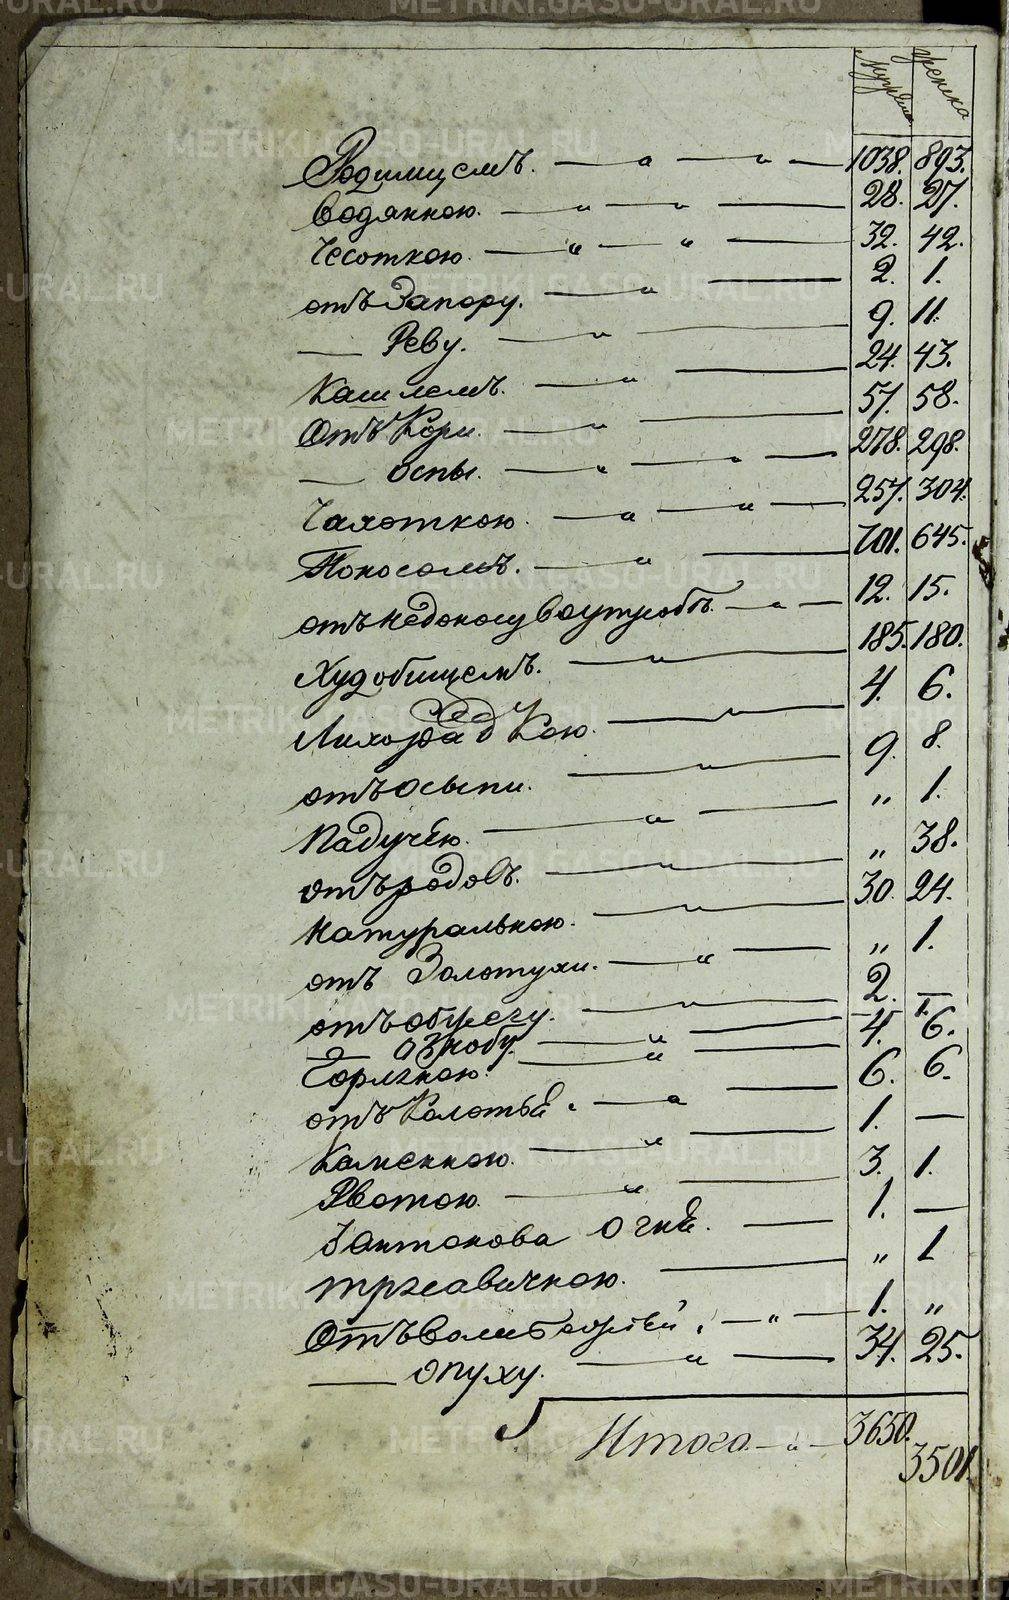 Мужеска женска
Родимцемъ. — „ — „ — 1038. 893.
Водянкою. — „ — „ — 28. 27.
Чесоткою. — „ — „ — 32. 42.
отъ Запору. — „ — 2. 1.
— Реву. — „ — 9. 11.
Кашлемъ. — „ — 24. 43.
Отъ Кори. — „ — 57. 58.
— оспы. — „ — „ — 278. 298.
Чахоткою. — „ — „ — 257. 304.
Поносомъ. — „ — 701. 645.
отъ недоносу во утробѣ. — „ — 12. 15.
Худобищемъ. — „ — 185. 180.
Лихорадкою. — „ — 4. 6.
отъ осыпи. — „ — 9. 8.
Падучею. — „ — „ 1.
отъ родовъ. — „ — „ 38.
Натуральною. — „ — 30. 24.
отъ Золотухи. — „ — „ 1.
отъ — „ — 2. —
— ознобу. — „ — 4. 6.
Горячкою. — „ — 6. 6.
отъ Колотья. — „ — 1. —
Каменною. — „ — 3. 1.
Рвотою. — „ — 1. —
Антонова огня. — „ 1
— 1. „
Отъ
— опуху. — „ — 34. 25.
Итого — „ — 3650. 3501.
METRIKI.GASO-URAL.RU